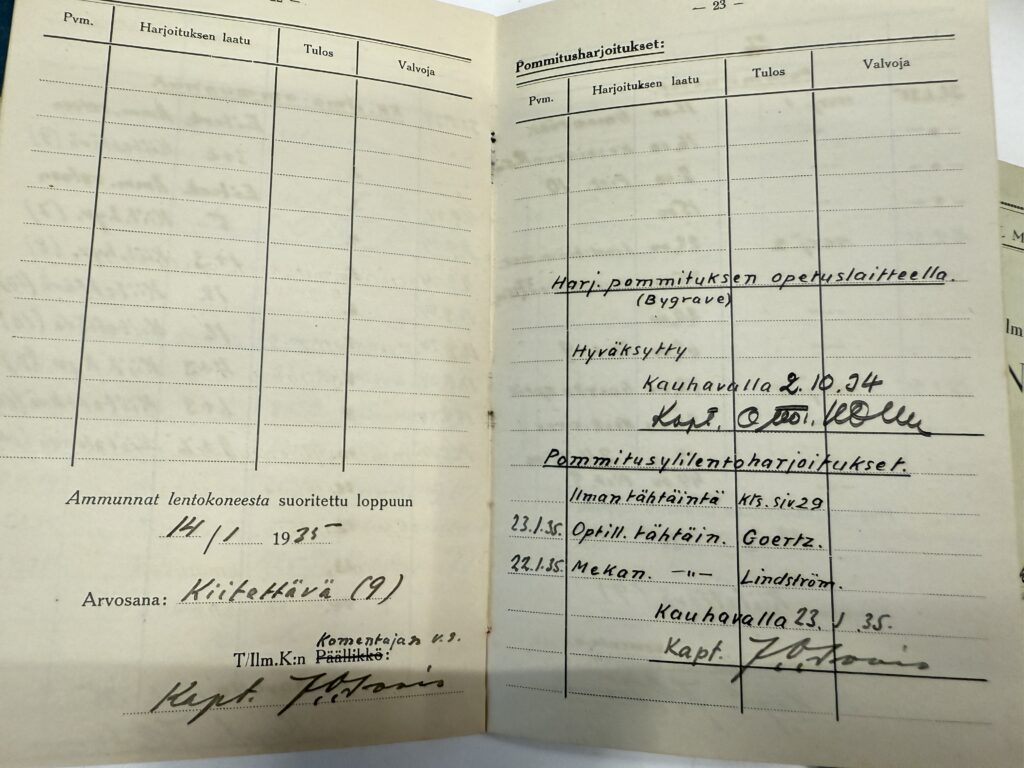 Pvm.
Harjoituksen laatu
Tulos
Valvoja
Ammunnat lentokoneesta suoritettu loppuun
14/1 1935
Arvosana: Kiitettävä (9)
Komentajan v.s.
T/Ilm.K:n Päällikkö:
Kapt.
— 23 —
Pommitusharjoitukset:
Pvm.
Harjoituksen laatu
Tulos
Valvoja
Harj. pommituksen opetuslaitteella.
(Bygrave)
Hyväksytty
Kauhavalla 2.10.34
Kapt.
Pommitusylilentoharjoitukset.
Ilman tähtäintä kts. siv. 29
23.1.35. Optill. tähtäin. Goertz.
22.1.35. Mekan. —"— Lindström.
Kauhavalla 23.1.35.
Kapt.